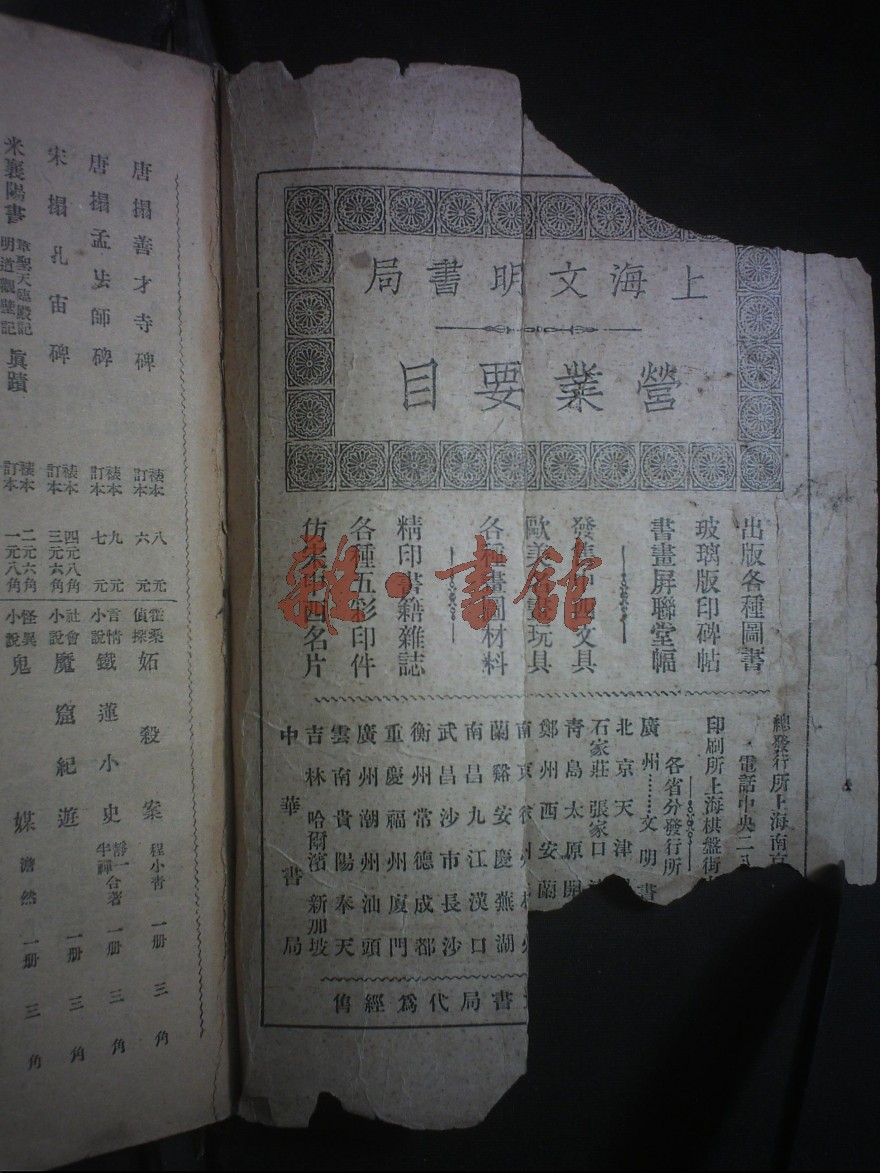 上海文明書局
營業要目
出版各種圖書
玻璃版印碑帖
書畫屏聯堂幅
發售中西文具
歐美名畫玩具
各種畫圖材料
精印書籍雜誌
各種五彩印件
仿宋中西名片
總發行所上海南京
電話中央二
印刷所上海棋盤街
各省分發行所
廣州……文明書
北京天津
石家莊 張家口
青島太原開
鄭州西安蘭
南京徐州
蘭谿安慶蕪湖
南昌九江漢口
武昌沙市長沙
衡州常德成都
重慶福州廈門
廣州潮州汕頭
雲南貴陽奉天
吉林 哈爾濱 新加坡
中華書局
書局代爲經售
雜·書館
唐搨善才寺碑 裱本 八元 訂本 六元
唐搨孟法師碑 裱本 九元 訂本 七元
宋搨孔宙碑 裱本 四元八角 訂本 三元六角
米襄陽書 章聖天臨殿記 明道觀壁記 眞蹟 裱本 二元六角 訂本 一元八角
偵探 妬殺案 程小青 一册 三角
言情小說 鐵蓮小史 靜一 半禪 合著 一册 三角
社會小說 魔窟紀遊 一册 三角
怪異小說 鬼媒 澹然 一册 三角